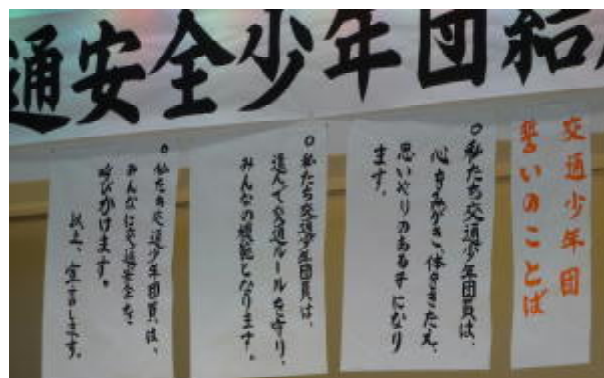 通安全少年団結
交通少年団
誓いのことば
○私たち交通少年団員は、
心をみがき、体をきたえ、
思いやりのある子になり
ます。
○私たち交通少年団員は、
進んで交通ルールを守り、
みんなの模範となります。
○私たち交通少年団員は、
みんなに交通安全を
呼びかけます。
以上、宣言します。